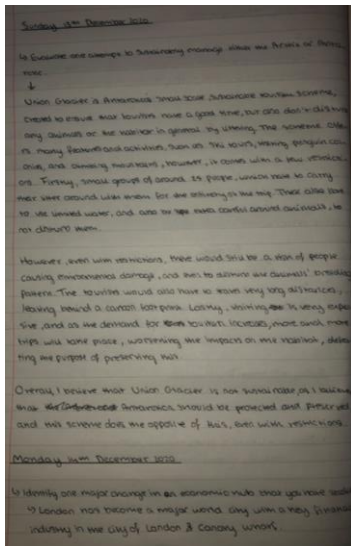 Sunday 13th December 2020
↳ Evaluate one attempt to sustainably manage either the Arctic or Antarc-
tic.
↓
Union Glacier is Antarctica's small scale, sustainable tourism scheme,
created to ensure that tourists have a good time, but also don't disturb
any animals or the habitat in general by littering. The scheme offe
rs many features and activities, such as ski tours, visiting penguin col
onies, and climbing mountains, however, it comes with a few restricti
ons. Firstly, small groups of around 25 people, which have to carry
their waste around with them for the entirety of the trip. They also have
to use limited water, and also to be extra careful around animals, to
not disturb them.
However, even with restrictions, there would still be a risk of people
causing environmental damage, and this to disturb the animals' breeding
pattern. The tourists would also have to travel very long distances,
leaving behind a carbon footprint. Lastly, visiting is very expen
sive, and as the demand for tourism increases, more and more
trips will take place, worsening the impacts on the habitat, defea
ting the purpose of preserving it.
Overall, I believe that Union Glacier is not sustainable, as I believe
that Antarctica should be protected and preserved
and this scheme does the opposite of this, even with restrictions.
Monday 14th December 2020
↳ Identify one major change in an economic hub that you have
↳ London has become a major world city with a key financial
industry in the city of London & Canary Wharf.